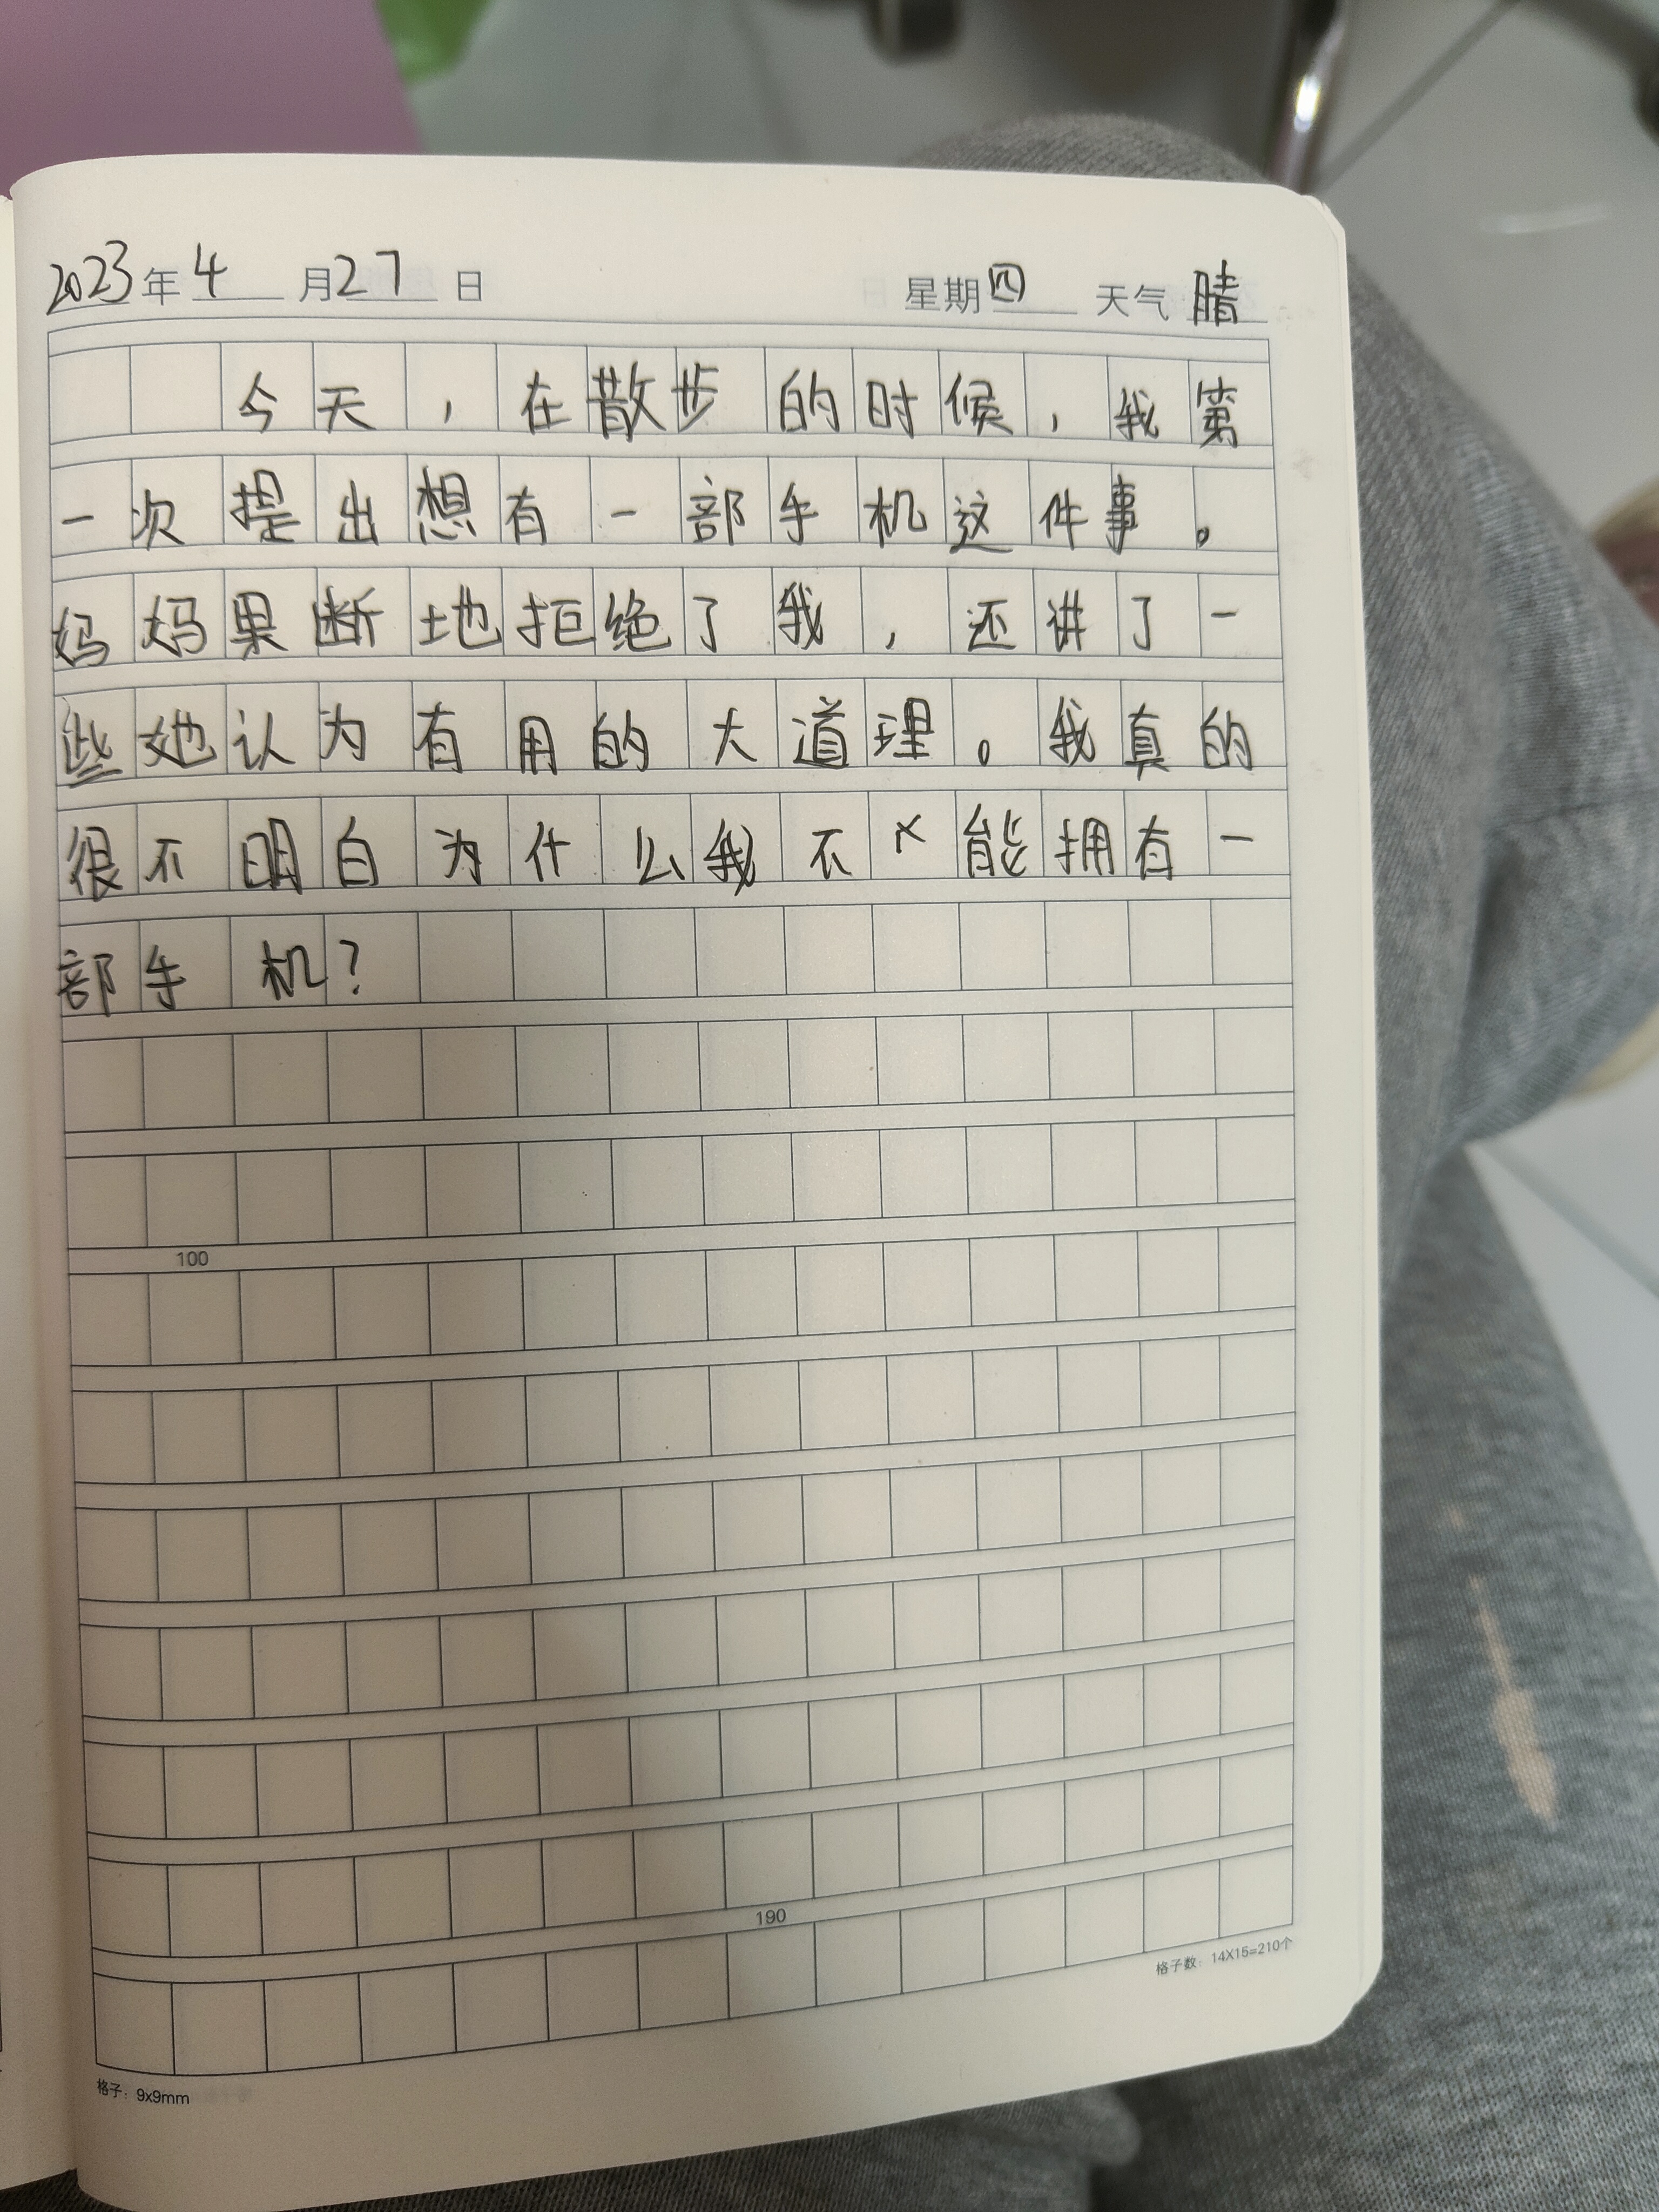 2023年4月27日 星期四 天气 晴
今天,在散步的时候,我第
一次提出想有一部手机这件事。
妈妈果断地拒绝了我,还讲了一
些她认为有用的大道理。我真的
很不明白为什么我不×能拥有一
部手机?
100
190
格子数:14X15=210个
格子:9x9mm